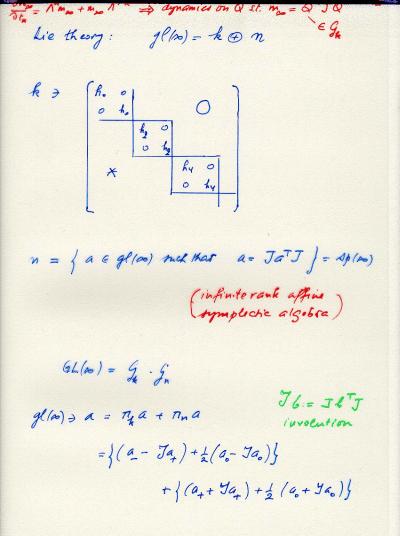 ⇒ dynamics on Q st. m∞ = Q⁻¹JQ
∈ G_k
Lie theory: gl(∞) = k ⊕ n
k ∋
h₀ 0
0 h₀
O
h₂ 0
0 h₂
*
h₄ 0
0 h₄
n = { a ∈ gl(∞) such that a = JaᵀJ } = sp(∞)
(infinite rank affine
symplectic algebra)
GL(∞) = G_k · G_n
gl(∞) ∋ a = π_k a + π_n a
𝒥b := JbᵀJ
involution
= {(a₋ − 𝒥a₊) + ½(a₀ − 𝒥a₀)}
+ {(a₊ + 𝒥a₊) + ½(a₀ + 𝒥a₀)}